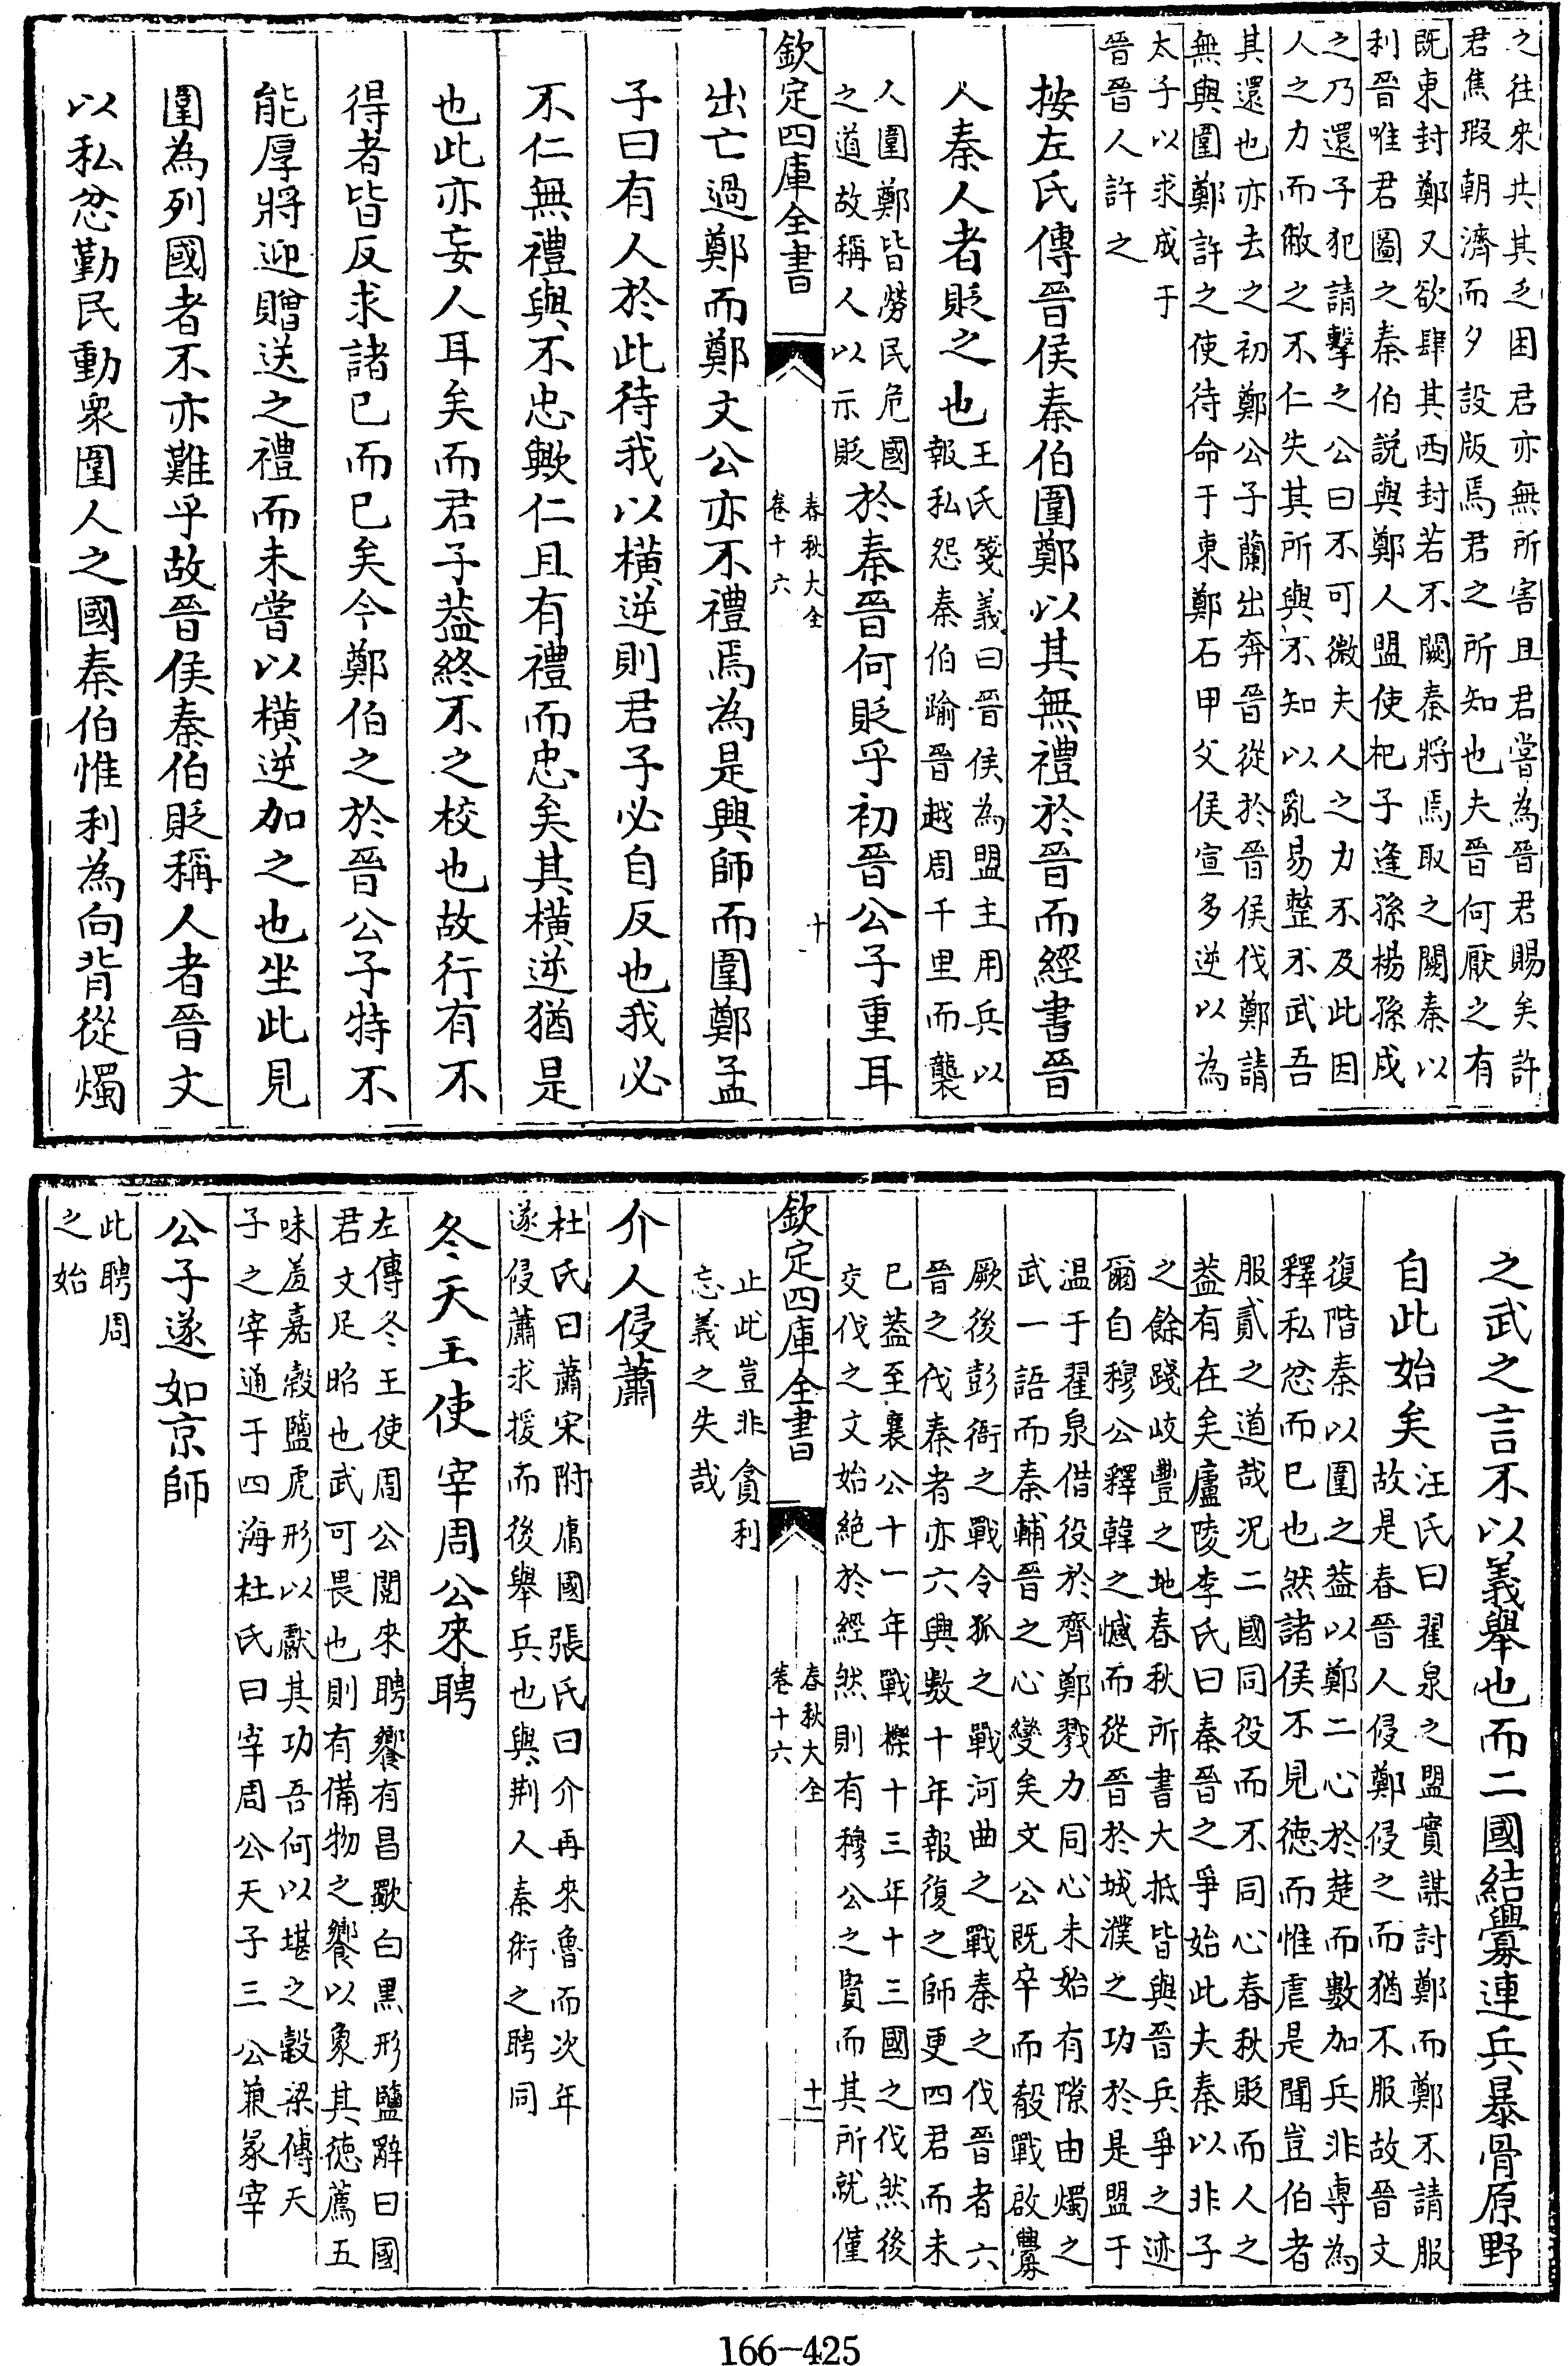 之往來共其乏困君亦無所害且君嘗為晉君賜矣許
君焦瑕朝濟而夕設版焉君之所知也夫晉何厭之有
既東封鄭又欲肆其西封若不闕秦將焉取之闕秦以
利晉唯君圖之秦伯説與鄭人盟使杞子逢孫楊孫戍
之乃還子犯請擊之公曰不可微夫人之力不及此因
人之力而敝之不仁失其所與不知以亂易整不武吾
其還也亦去之初鄭公子蘭出奔晉從於晉侯伐鄭請
無與圍鄭許之使待命于東鄭石甲父侯宣多逆以為
太子以求成于
晉晉人許之
按左氏傳晉侯秦伯圍鄭以其無禮於晉而經書晉
人秦人者貶之也
王氏箋義曰晉侯為盟主用兵以
報私怨秦伯踰晉越周千里而襲
人圍鄭皆勞民危國
之道故稱人以示貶
於秦晉何貶乎初晉公子重耳
欽定四庫全書
春秋大全
卷十六
十
出亡過鄭而鄭文公亦不禮焉為是興師而圍鄭孟
子曰有人於此待我以橫逆則君子必自反也我必
不仁無禮與不忠歟仁且有禮而忠矣其橫逆猶是
也此亦妄人耳矣而君子葢終不之校也故行有不
得者皆反求諸己而已矣今鄭伯之於晉公子特不
能厚將迎贈送之禮而未嘗以橫逆加之也坐此見
圍為列國者不亦難乎故晉侯秦伯貶稱人者晉文
以私忿勤民動衆圍人之國秦伯惟利為向背從燭
之武之言不以義舉也而二國結釁連兵暴骨原野
自此始矣
汪氏曰翟泉之盟實謀討鄭而鄭不請服
故是春晉人侵鄭侵之而猶不服故晉文
復階秦以圍之葢以鄭二心於楚而數加兵非専為
釋私忿而已也然諸侯不見徳而惟虐是聞豈伯者
服貳之道哉况二國同役而不同心春秋貶而人之
葢有在矣廬陵李氏曰秦晉之爭始此夫秦以非子
之餘踐岐豐之地春秋所書大抵皆與晉兵爭之迹
爾自穆公釋韓之憾而從晉於城濮之功於是盟于
温于翟泉偕役於齊鄭戮力同心未始有隙由燭之
武一語而秦輔晉之心變矣文公既卒而殽戰啟釁
厥後彭衙之戰令狐之戰河曲之戰秦之伐晉者六
晉之伐秦者亦六興數十年報復之師更四君而未
已葢至襄公十一年戰櫟十三年十三國之伐然後
交伐之文始絶於經然則有穆公之賢而其所就僅
欽定四庫全書
春秋大全
卷十六
十一
止此豈非貪利
忘義之失哉
介人侵蕭
杜氏曰蕭宋附庸國張氏曰介再來魯而次年
遂侵蕭求援而後舉兵也與荆人秦術之聘同
冬天王使宰周公來聘
左傳冬王使周公閲來聘饗有昌歜白黒形鹽辭曰國
君文足昭也武可畏也則有備物之饗以象其徳薦五
味羞嘉穀鹽虎形以獻其功吾何以堪之穀梁傳天
子之宰通于四海杜氏曰宰周公天子三公兼冢宰
公子遂如京師
此聘周
之始
166-425